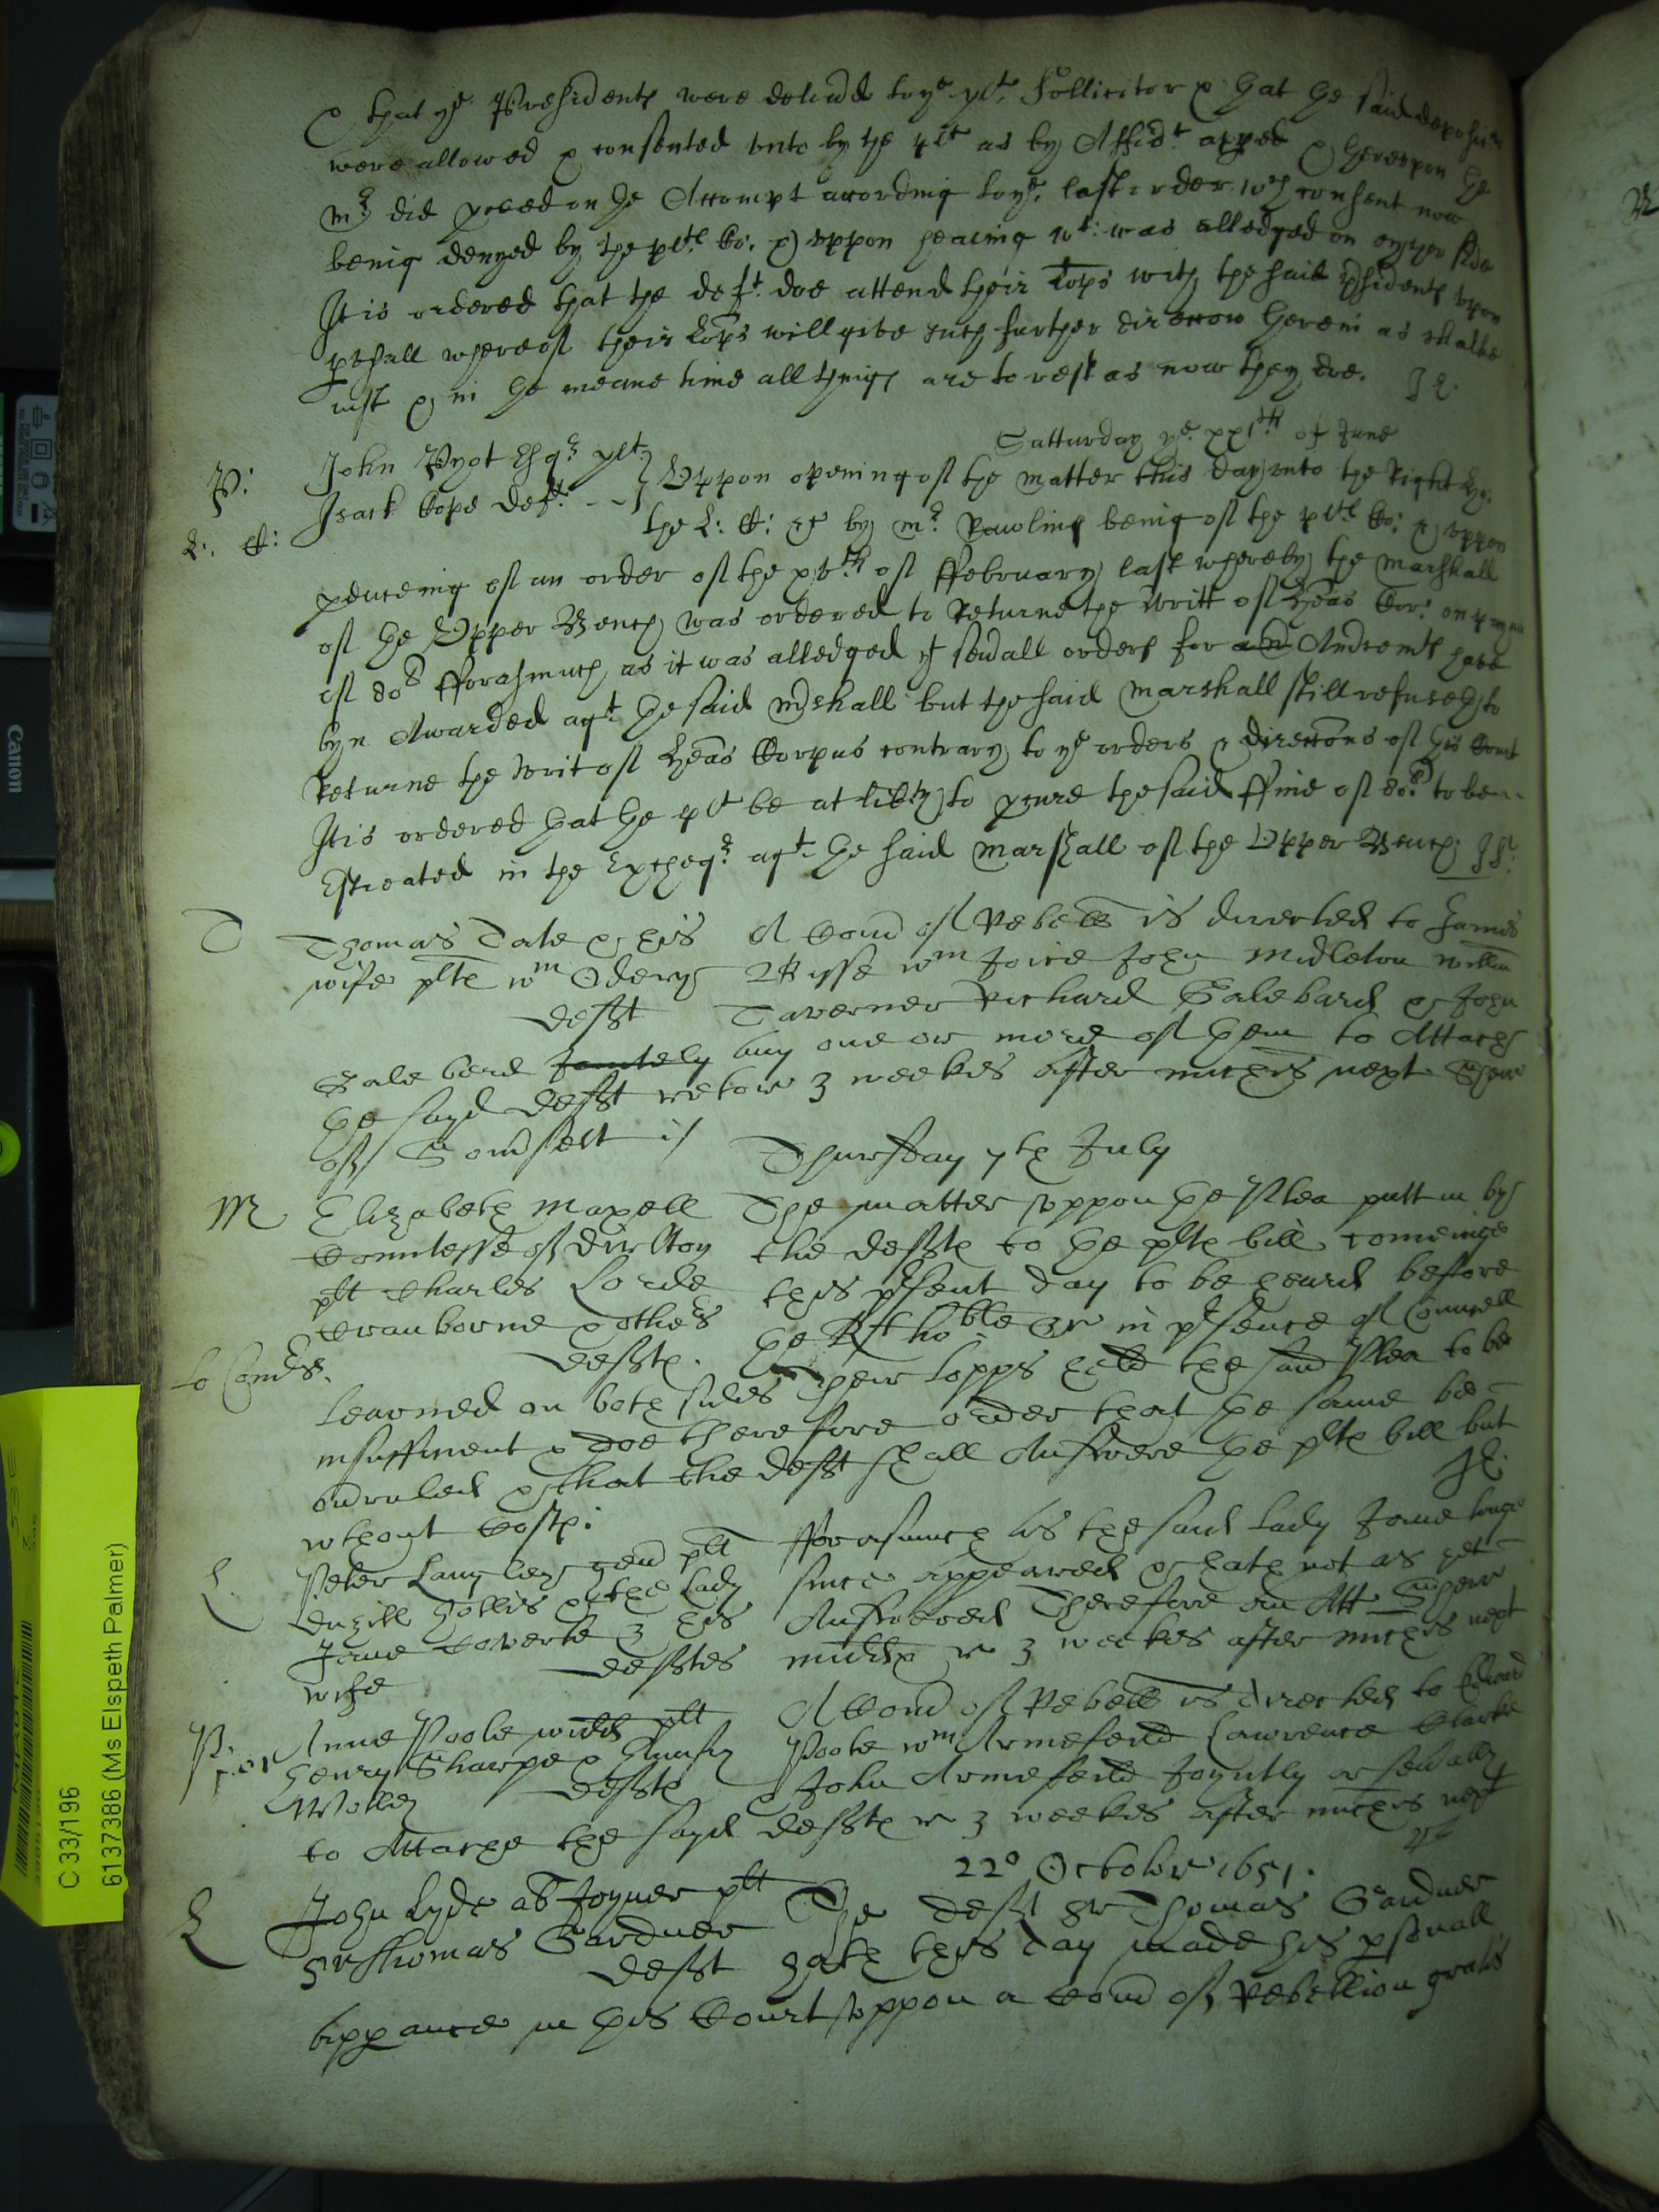 & that ye Presidents were delivd to ye plt Sollicitor & that the said deposicns
were allowed & consented unto by the plt as by Affidt appeð & thereupon the
Mr did pceed on the Accompt according to ye last order wch consent now
being denyed by the plts Co: & uppon hearing wt was alledged on eyther side
It is ordered that the deft doe attend their Lopps with the said psidents upon
pusall whereof their Lopps will give such further direccon herein as shalbe
just & in the meane time all things are to rest as now they doe.
Satturday ye xxith of June
P: John Pyot Esqr plt
Isack Cope deft
Uppon opening of the matter this day unto the Right ho:
L: C: the L: C: &c by Mr Rawlins being of the plts Co: & uppon
pduceing of an order of the xvth of ffebruary last whereby the Marshall
of the Upper Bench was ordered to Returne the Writt of Heas Cor: on payne
of 80l fforasmuch as it was alledged yt sevall orders for an Amrcemts have
byn Awarded agt the said Mrshall but the said Marshall still refuseth to
Returne the Writ of Heas Corpus contrary to ye orders & direccons of this Court
It is ordered that the plt be at libty to pcure the said ffine of 80l to be
Estreated in the Excheqr agt the said Marshall of the Upper Bench
T Thomas Tate & his A Comð of Rebell is directed to James
wife plts Wm Odery Bisse Wm Joice John Midleton Willm
defft Taverner Richard Galebard & John
Galebard Joyntely any one or more of them to Attach
the sayd defft retor 3 weekes after Miches next Sher
of Somðsett
Thursday 7th July
M Elizabeth Maxell The matter uppon the Plea putt in by
Countesse of Dirlton the deffts to the plts bill comeinge
plt Charles Lorde this psent day to be heard before
Cranborne & others the Rt hoble &c in psence of Councell
deffts. Their Lopps held the said Plea to be
lo Comrs.
learned on both sides
insufficient & doe therefore order that the same be
ovruled & that the defft shall Answere the plts bill but
wthout Costs:
L Peter Langley gent plt fforasmuch as the said lady Jane longe
Denzill Hollis & the Lady since appeared & hath not as yet
Jane Coverte his Answered Therefore an Att Sher
wife deffts Middx re 3 weekes after Miches next
P: Anne Poole widd plt A Comð of Rebell is directed to Edward
Henry Sharpe & Poole Wm Armefeild Lawrence Clarke
Wolley deffts & John Armefeild Joyntly or sevally
to Attache the sayd deffts re 3 weekes after Miches next
22o October 1651.
L John Lyde als Joyner plt The defft Sr Thomas Gardner
Sr Thomas Gardner
defft hath this day made his psonall
appance in this Court uppon a Comð of Rebellion gratis
Canon
C 33/196
6137386 (Ms Elspeth Palmer)